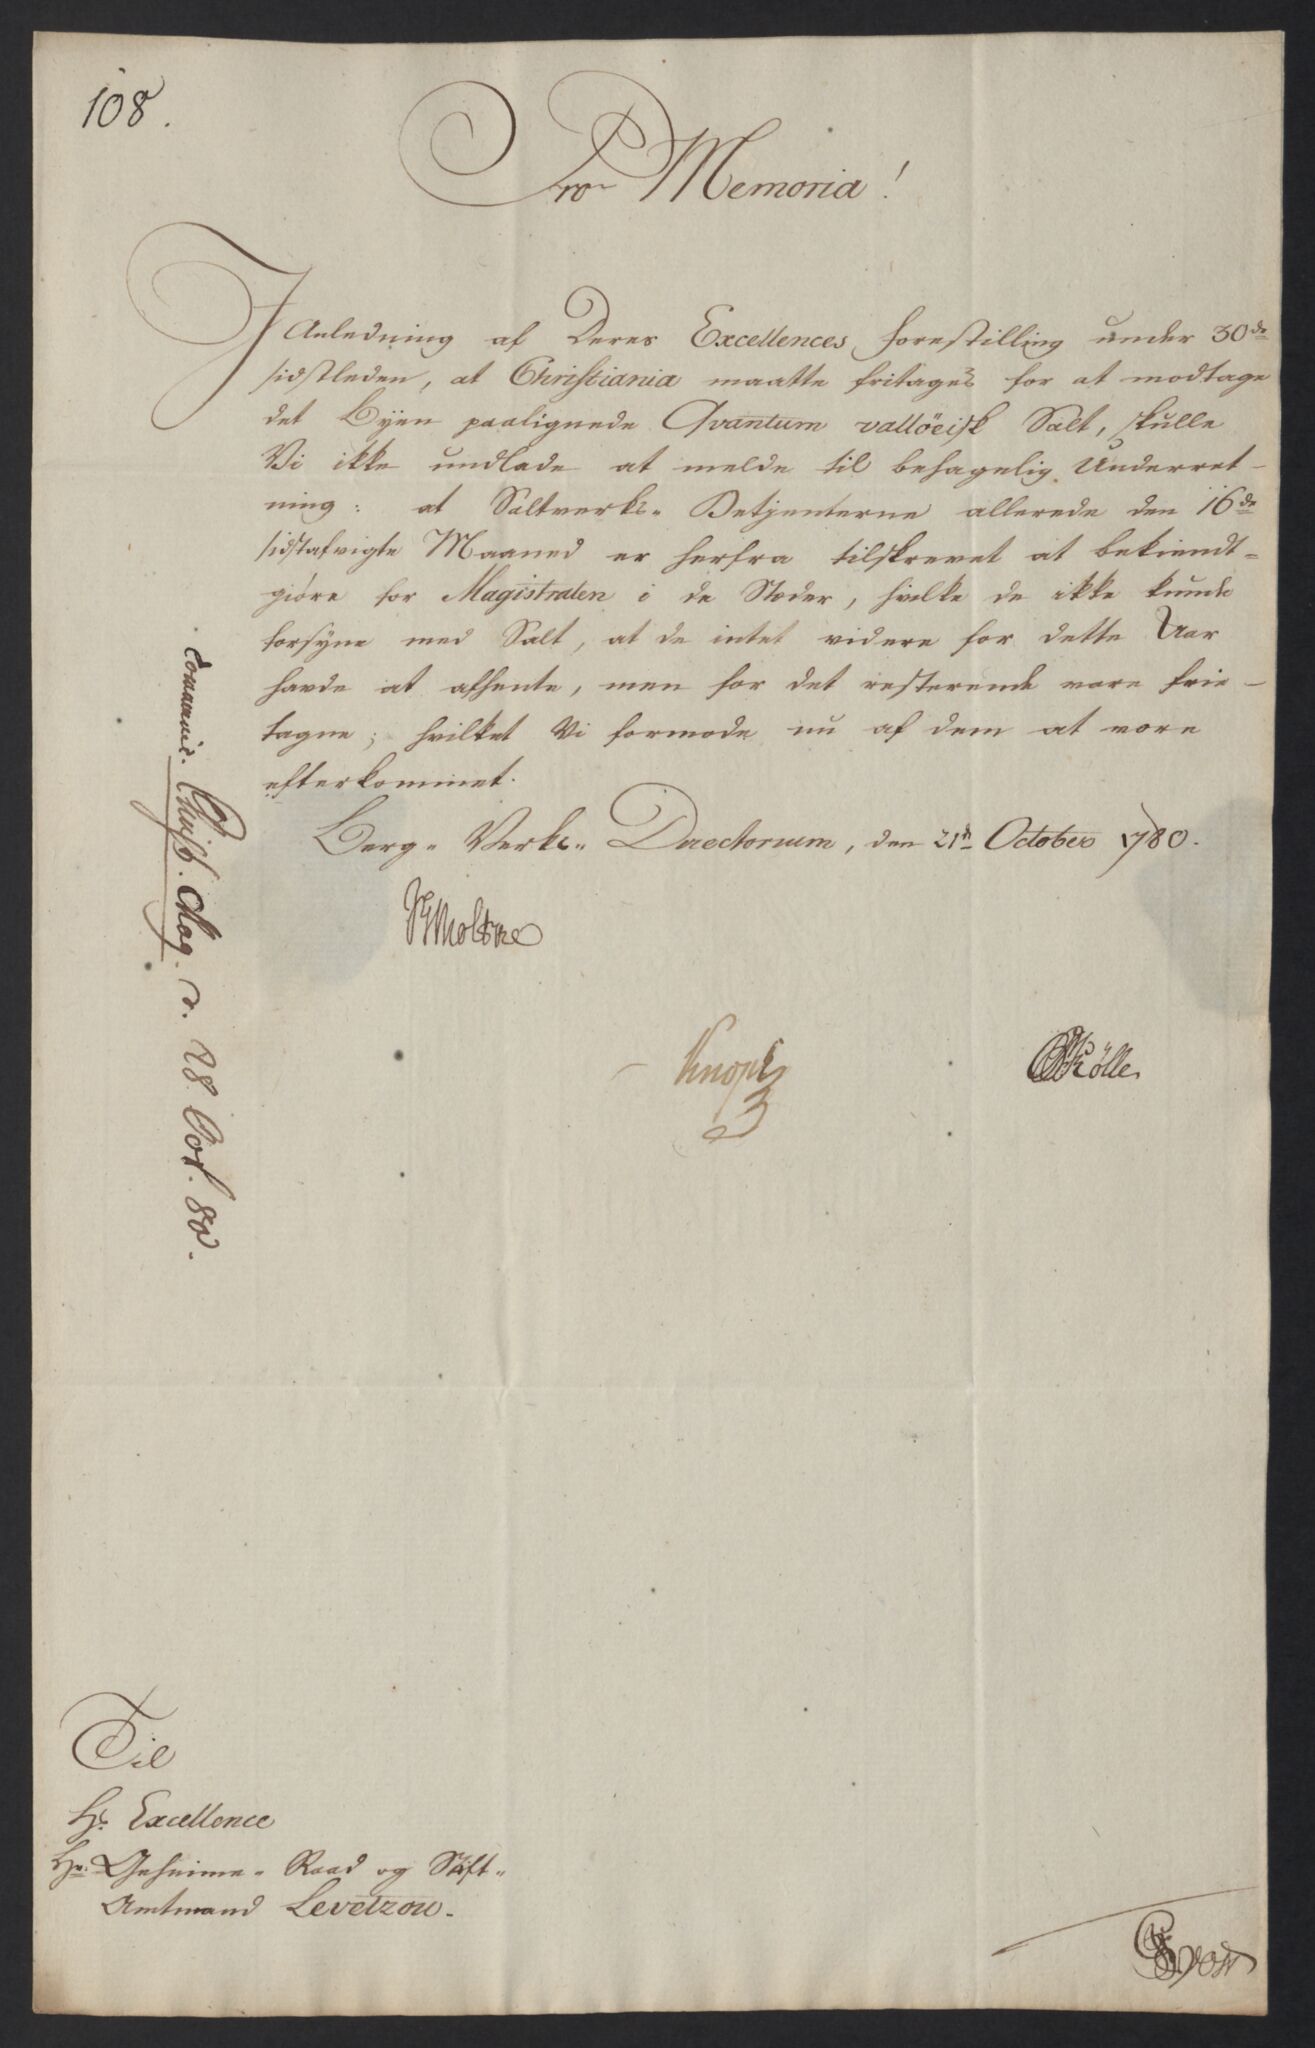 108.
Pro Memoria!
I Anledning af Deres Excellences Forestilling under 30de
sidstleden, at Christiania maatte fritages for at modtage
det Byen paalignede Qvantum vallöeisk Salt, skulle
Vi ikke undlade at melde til behagelig Underret-
ning: at Saltverks- Betjenterne allerede den 16de
sidstafvigte Maaned er herfra tilskrevet at bekiendt-
giøre for Magistraten i de Stæder, hvilke de ikke kunde
forsyne med Salt, at de intet videre for dette Aar
havde at afhente, men for det resterende vare frie-
tagne; hvilket Vi formode nu af dem at være
efterkommet.
Berg- Verks- Directorium, den 21de October 1780.
Moltke
Knoph
Kölle
Communic. Christ. Mag. d. 28 Oct. 80.
Til
Hs. Excellence
Hr. Geheime- Raad og Stift-
Amtmand Levetzou.